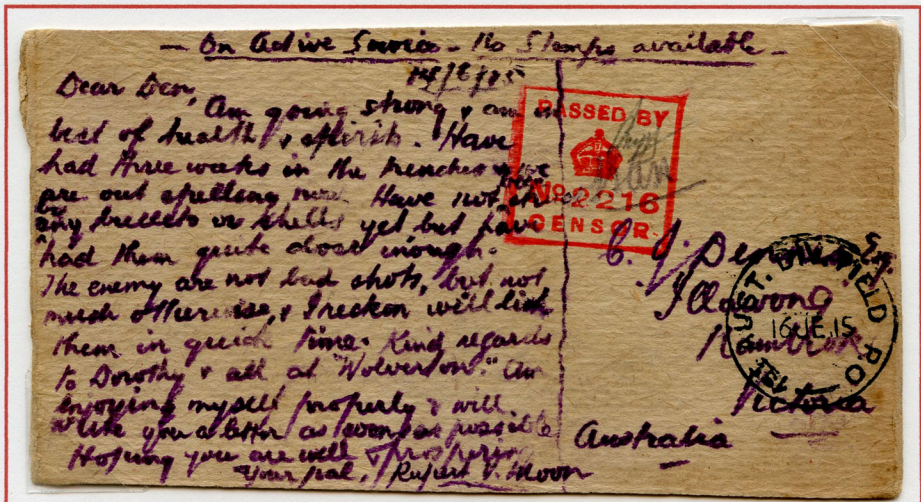 — On Active Service - No Stamps available —
15/6/15
Dear Den,
Am going strong & am in
best of health & spirits. Have
had three weeks in the trenches & we
are out spelling now. Have not
any bullets or shells yet but have
had them quite close enough.
The enemy are not bad shots, but not
much otherwise, & I reckon we'll lick
them in quick time. Kind regards
to Dorothy & all at "Wolverton." Am
enjoying myself properly & will
write you a letter as soon as possible
Hoping you are well & prospering
Your pal, Rupert V. Moon
PASSED BY
No 2216
CENSOR
C. J. Esq.
Illawong
Victoria
Australia
1ST AUST. DIV. FIELD P.O.
16 JE. 15